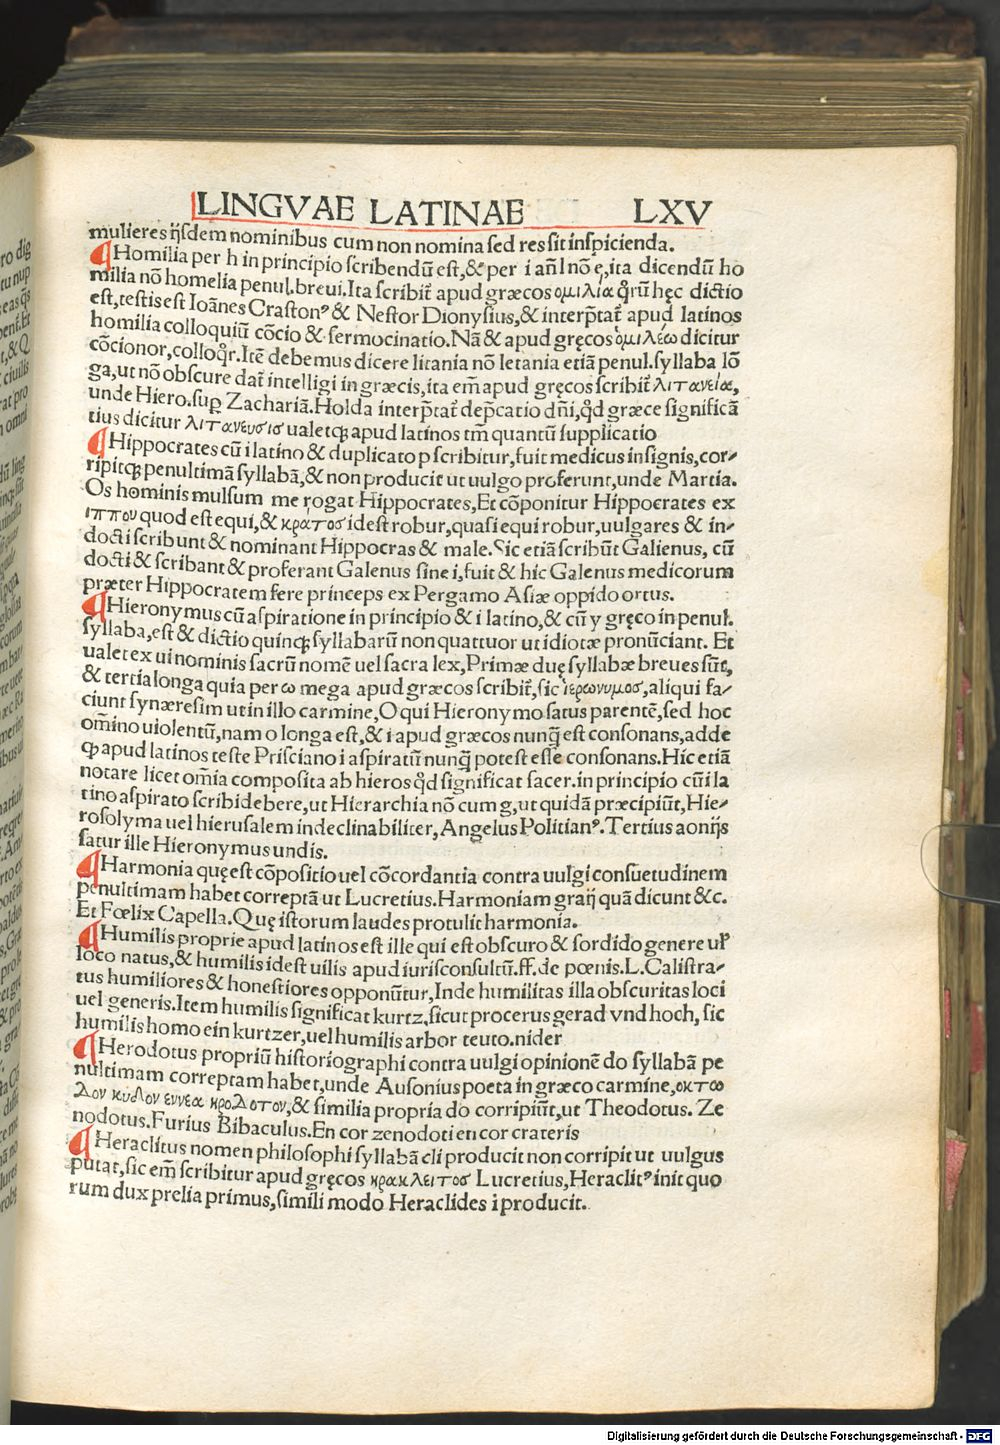 LINGVAE LATINAE LXV
mulieres ijſdem nominibus cum non nomina ſed res ſit inſpicienda.
¶Homilia per h in principio ſcribendū eſt,& per i añl nō ę,ita dicendū ho
milia nō homelia penul.breui.Ita ſcribit̃ apud græcos ομιλία q̃rū hęc dictio
eſt,teſtis eſt Ioānes Craſtonꝰ & Neſtor Dionyſius,& interp̄tat̃ apud latinos
homilia colloquiū cōcio & ſermocinatio.Nā & apud gręcos ὁμιλέω dicitur
cōcionor,colloq̃r.Itē debemus dicere litania nō letania etiā penul.ſyllaba lō
ga,ut nō obſcure dat̃ intelligi in græcis,ita em̄ apud gręcos ſcribit̃ λιτανεία,
unde Hiero.ſuꝑ Zachariā.Holda interp̄tat̃ dep̄catio dñi,q̃d græce ſignificā
tius dicitur λιτανευσισ ualetqꝫ apud latinos tm̄ quantū ſupplicatio
¶Hippocrates cū i latino & duplicato p ſcribitur,fuit medicus inſignis,cor⸗
ripitqꝫ penultimā ſyllabā,& non producit ut uulgo proferunt,unde Martia.
Os hominis mulſum me rogat Hippocrates,Et cōponitur Hippocrates ex
ιππου quod eſt equi,& κρατοσ ideſt robur,quaſi equi robur,uulgares & in⸗
docti ſcribunt & nominant Hippocras & male.Sic etiā ſcribūt Galienus, cū
docti & ſcribant & proferant Galenus ſine i,fuit & hic Galenus medicorum
præter Hippocratem fere princeps ex Pergamo Aſiæ oppido ortus.
¶Hieronymus cū aſpiratione in principio & i latino,& cū y gręco in penul.
ſyllaba,eſt & dictio quinqꝫ ſyllabarū non quattuor ut idiotæ pronūciant. Et
ualet ex ui nominis ſacrū nomē uel ſacra lex,Primæ duę ſyllabæ breues ſūt,
& tertia longa quia per ω mega apud græcos ſcribit̃,ſic ἱερωνυμος,aliqui fa⸗
ciunt ſynæreſim ut in illo carmine,O qui Hieronymo ſatus parentē,ſed hoc
om̄ino uiolentū,nam o longa eſt,& i apud græcos nunq̃ eſt conſonans,adde
qꝫ apud latinos teſte Priſciano i aſpiratū nunq̃ poteſt eſſe conſonans.Hic etiā
notare licet om̄ia compoſita ab hieros q̃d ſignificat ſacer.in principio cū i la
tino aſpirato ſcribi debere,ut Hierarchia nō cum g,ut quidā præcipiūt,Hie⸗
roſolyma uel hieruſalem indeclinabiliter,Angelus Politianꝰ.Tertius aonijs
ſatur ille Hieronymus undis.
¶Harmonia quę eſt cōpoſitio uel cōcordantia contra uulgi conſuetudinem
penultimam habet correptā ut Lucretius.Harmoniam graij quā dicunt &c.
Et Fœlix Capella.Quę iſtorum laudes protulit harmonia.
¶Humilis proprie apud latinos eſt ille qui eſt obſcuro & ſordido genere ul̃
loco natus,& humilis ideſt uilis apud iuriſconſultū.ff.de pœnis.L.Caliſtra⸗
tus humiliores & honeſtiores opponūtur,Inde humilitas illa obſcuritas loci
uel generis.Item humilis ſignificat kurtz,ſicut procerus gerad vnd hoch, ſic
humilis homo ein kurtzer,uel humilis arbor teuto.nider
¶Herodotus propriū hiſtoriographi contra uulgi opinionē do ſyllabā pe
nultimam correptam habet,unde Auſonius poeta in græco carmine,οκτω
& ſimilia propria do corripiūt,ut Theodotus. Ze
nodotus.Furius Bibaculus.En cor zenodoti en cor crateris
¶Heraclitus nomen philoſophi ſyllabā cli producit non corripit ut uulgus
putat,ſic em̄ ſcribitur apud gręcos ηρακλειτοσ Lucretius,Heraclitꝰ init quo
rum dux prelia primus,ſimili modo Heraclides i producit.
Digitalisierung gefördert durch die Deutsche Forschungsgemeinschaft - DFG